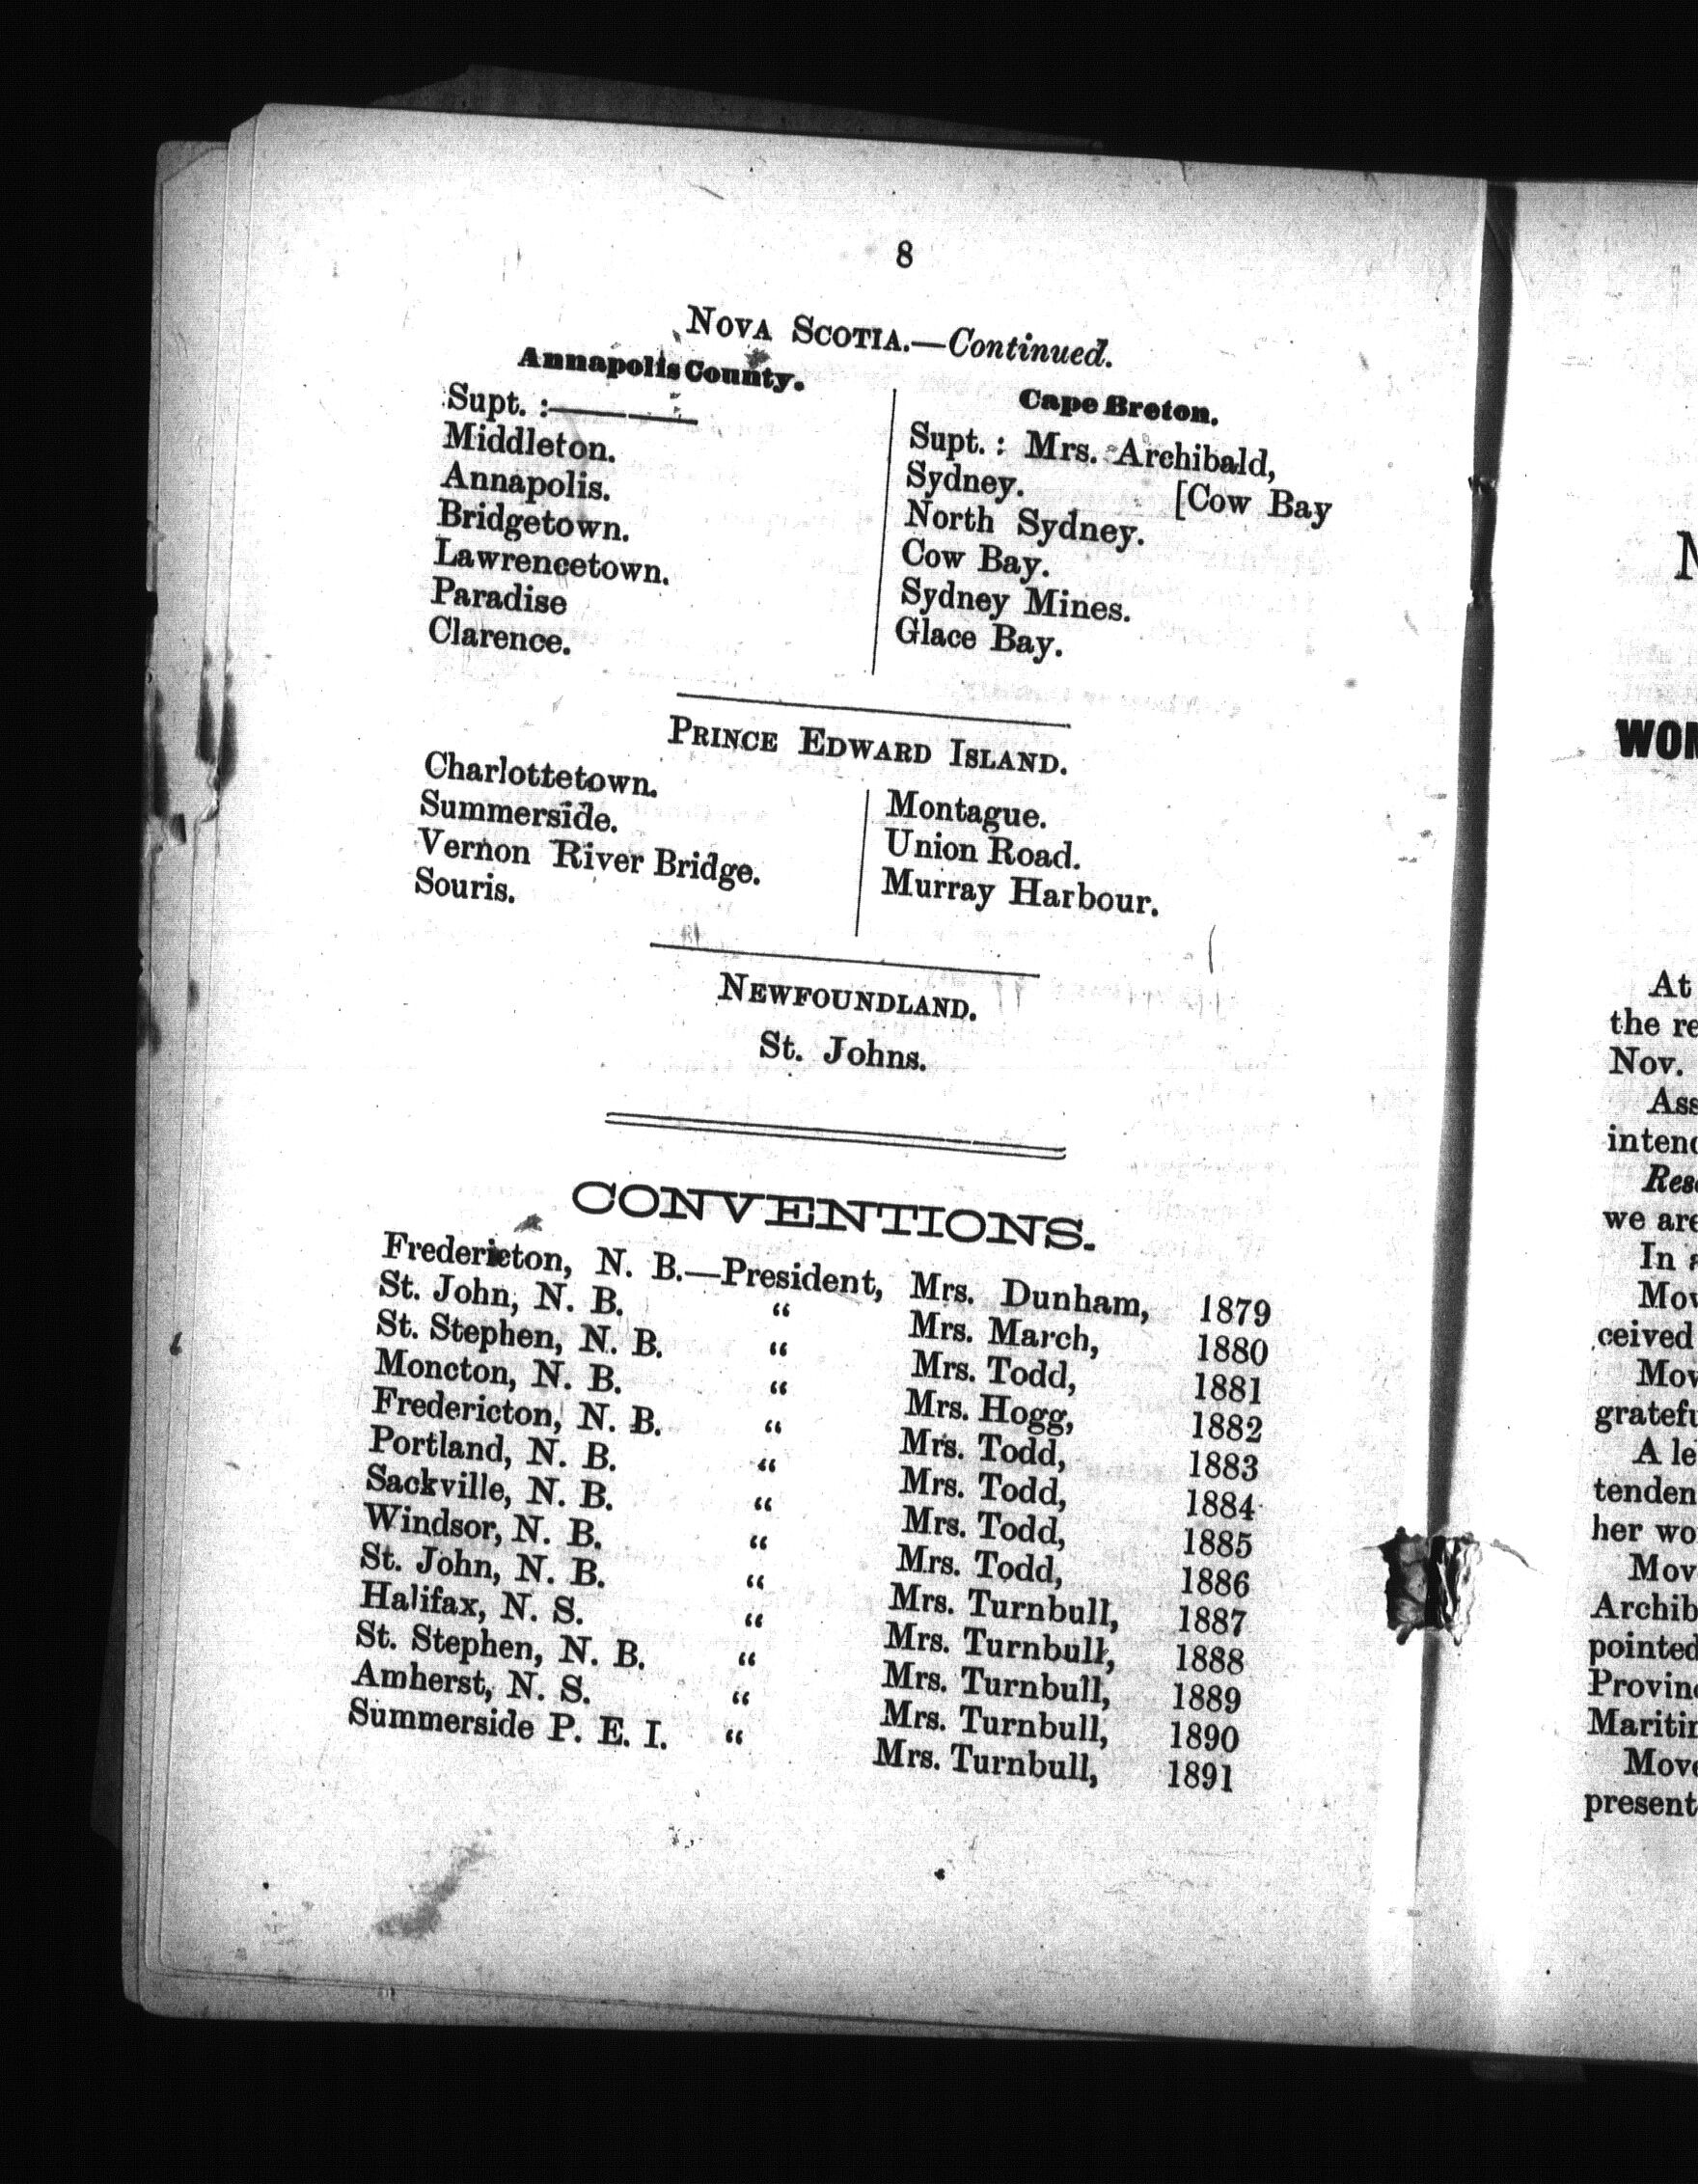 8
NOVA SCOTIA.—Continued.
Annapolis County.
Supt. :——— ———
Middleton.
Annapolis.
Bridgetown.
Lawrencetown.
Paradise
Clarence.
Cape Breton.
Supt. : Mrs. Archibald,
Sydney. [Cow Bay
North Sydney.
Cow Bay.
Sydney Mines.
Glace Bay.
PRINCE EDWARD ISLAND.
Charlottetown.
Summerside.
Vernon River Bridge.
Souris.
Montague.
Union Road.
Murray Harbour.
NEWFOUNDLAND.
St. Johns.
CONVENTIONS.
Fredericton, N. B.—President, Mrs. Dunham, 1879
St. John, N. B. “ Mrs. March, 1880
St. Stephen, N. B. “ Mrs. Todd, 1881
Moncton, N. B. “ Mrs. Hogg, 1882
Fredericton, N. B. “ Mrs. Todd, 1883
Portland, N. B. “ Mrs. Todd, 1884
Sackville, N. B. “ Mrs. Todd, 1885
Windsor, N. B. “ Mrs. Todd, 1886
St. John, N. B. “ Mrs. Turnbull, 1887
Halifax, N. S. “ Mrs. Turnbull, 1888
St. Stephen, N. B. “ Mrs. Turnbull, 1889
Amherst, N. S. “ Mrs. Turnbull, 1890
Summerside P. E. I. “ Mrs. Turnbull, 1891
WOM
At
the re
Nov.
Ass
intend
Res
we are
In a
Mov
ceived
Mov
gratefu
A le
tenden
her wo
Mov
Archib
pointed
Provinc
Maritim
Move
present